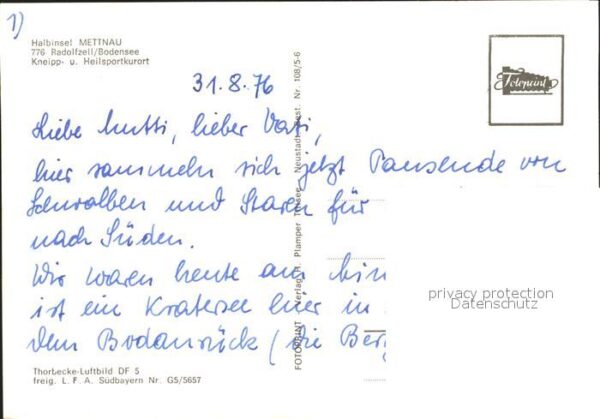 1)
Halbinsel METTNAU
776 Radolfzell/Bodensee
Kneipp- u. Heilsportkurort
Fotoprint
31.8.76
Liebe Mutti, lieber Vati,
hier sammeln sich jetzt Tausende von
Schwalben und Staren für
nach Süden.
Wir waren heute am Min
ist ein Kratersee hier in
dem Bodanrück (die Ber
privacy protection
Datenschutz
FOTOPRINT Verlag H. Plamper Neustadt Best. Nr. 108/5-6
Thorbecke-Luftbild DF 5
freig. L. F. A. Südbayern Nr. G5/5657